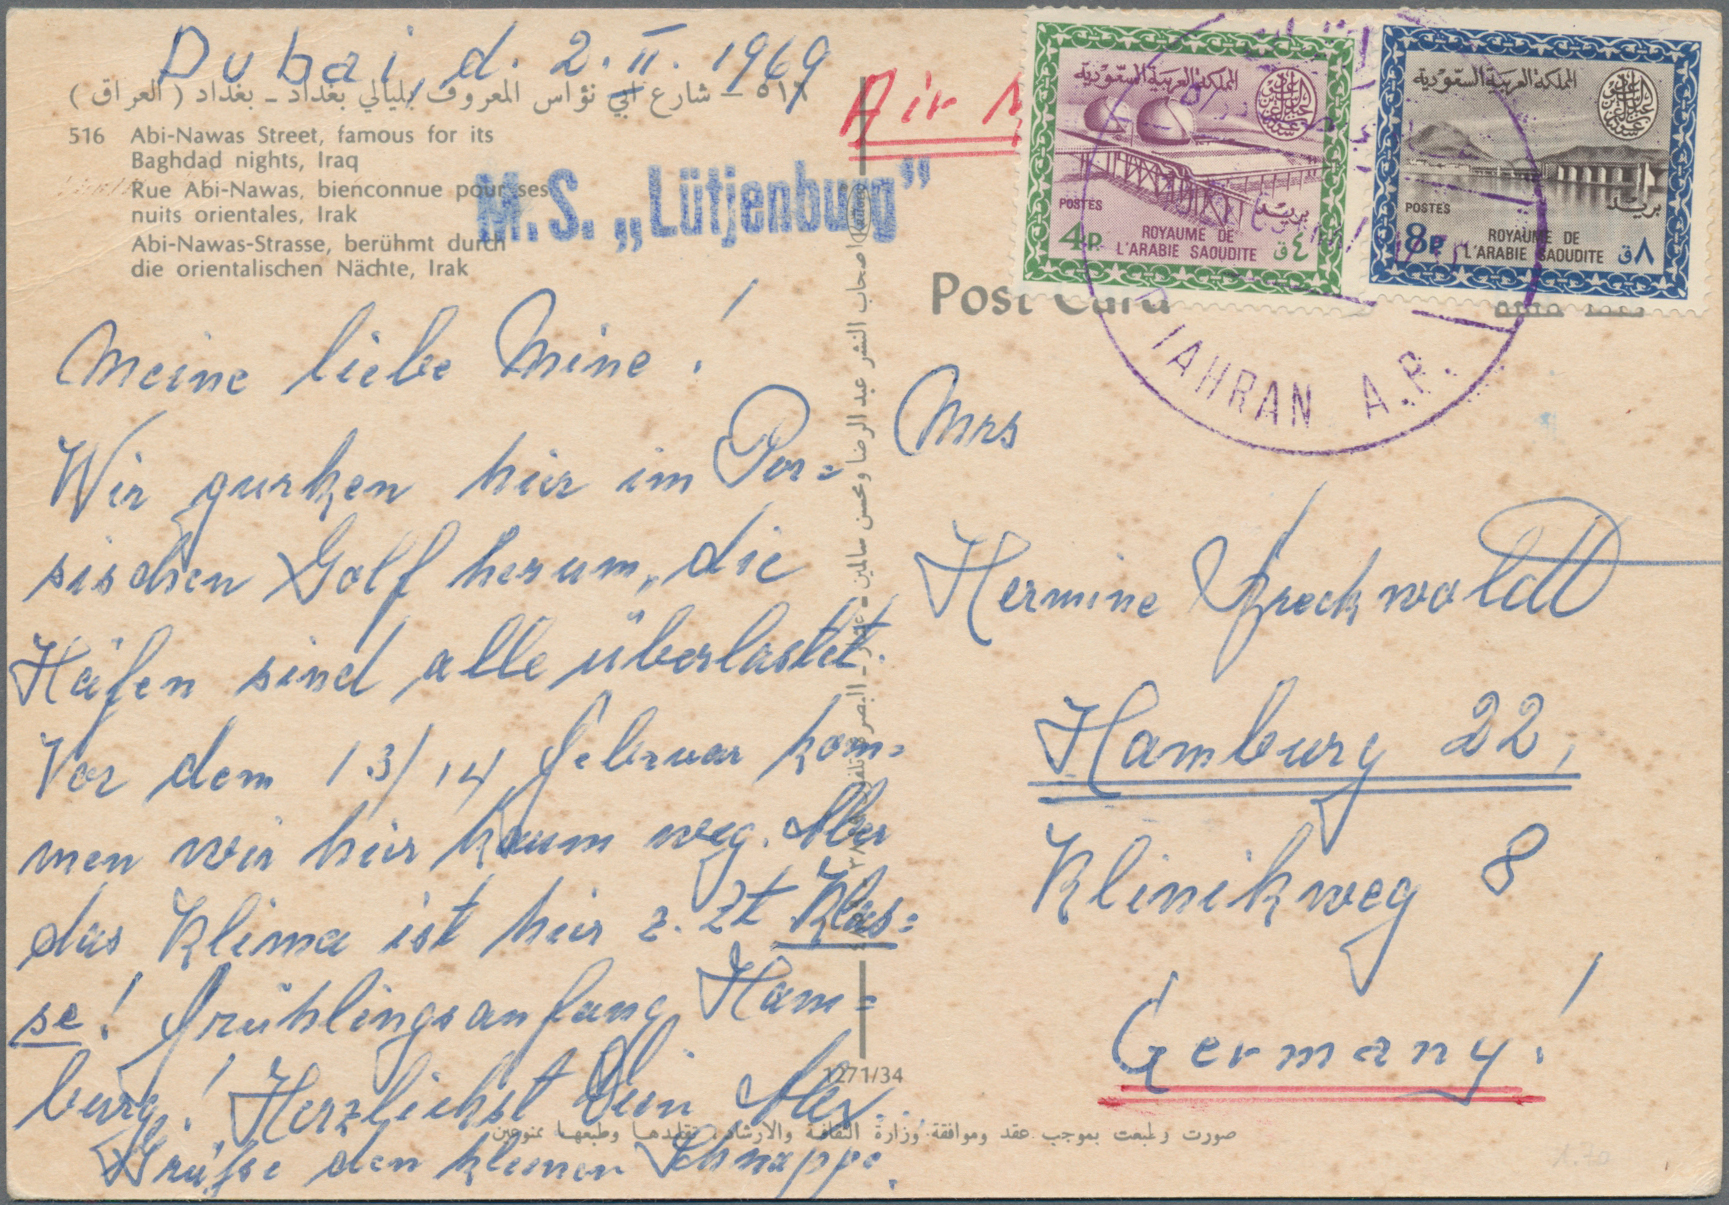 Dubai, d. 2. II. 1969
٥١٦ – شارع ابي نؤاس المعروف بليالي بغداد – بغداد ( العراق )
516 Abi-Nawas Street, famous for its
Baghdad nights, Iraq
Rue Abi-Nawas, bienconnue pour ses
nuits orientales, Irak
Abi-Nawas-Strasse, berühmt durch
die orientalischen Nächte, Irak
M.S. „Lütjenburg”
Meine liebe Mine!
Wir gurken hier im Per=
sischen Golf herum, die
Häfen sind alle überlastet.
Vor dem 13/14 Februar kom=
men wir hier kaum weg. Aber
das Klima ist hier z. Zt Klas=
se! Frühlingsanfang Ham=
burg! Herzlichst Dein Alex.
Grüße den kleinen Schnappi.
اصحاب النشر عبد الرضا ومحسن سالمين - البصرة تلفون
1271/34
صورت وطبعت بموجب عقد وموافقة وزارة الثقافة والارشاد، تقليدها وطبعها ممنوعين
Air
Post Card
المملكة العربية السعودية
POSTES
بريد
4P
ROYAUME DE
L'ARABIE SAOUDITE
٤ ق
المملكة العربية السعودية
POSTES
بريد
8P
ROYAUME DE
L'ARABIE SAOUDITE
٨ ق
AHRAN A.P.
Mrs
Hermine Greckwoldt
Hamburg 22,
Klinikweg 8
Germany!